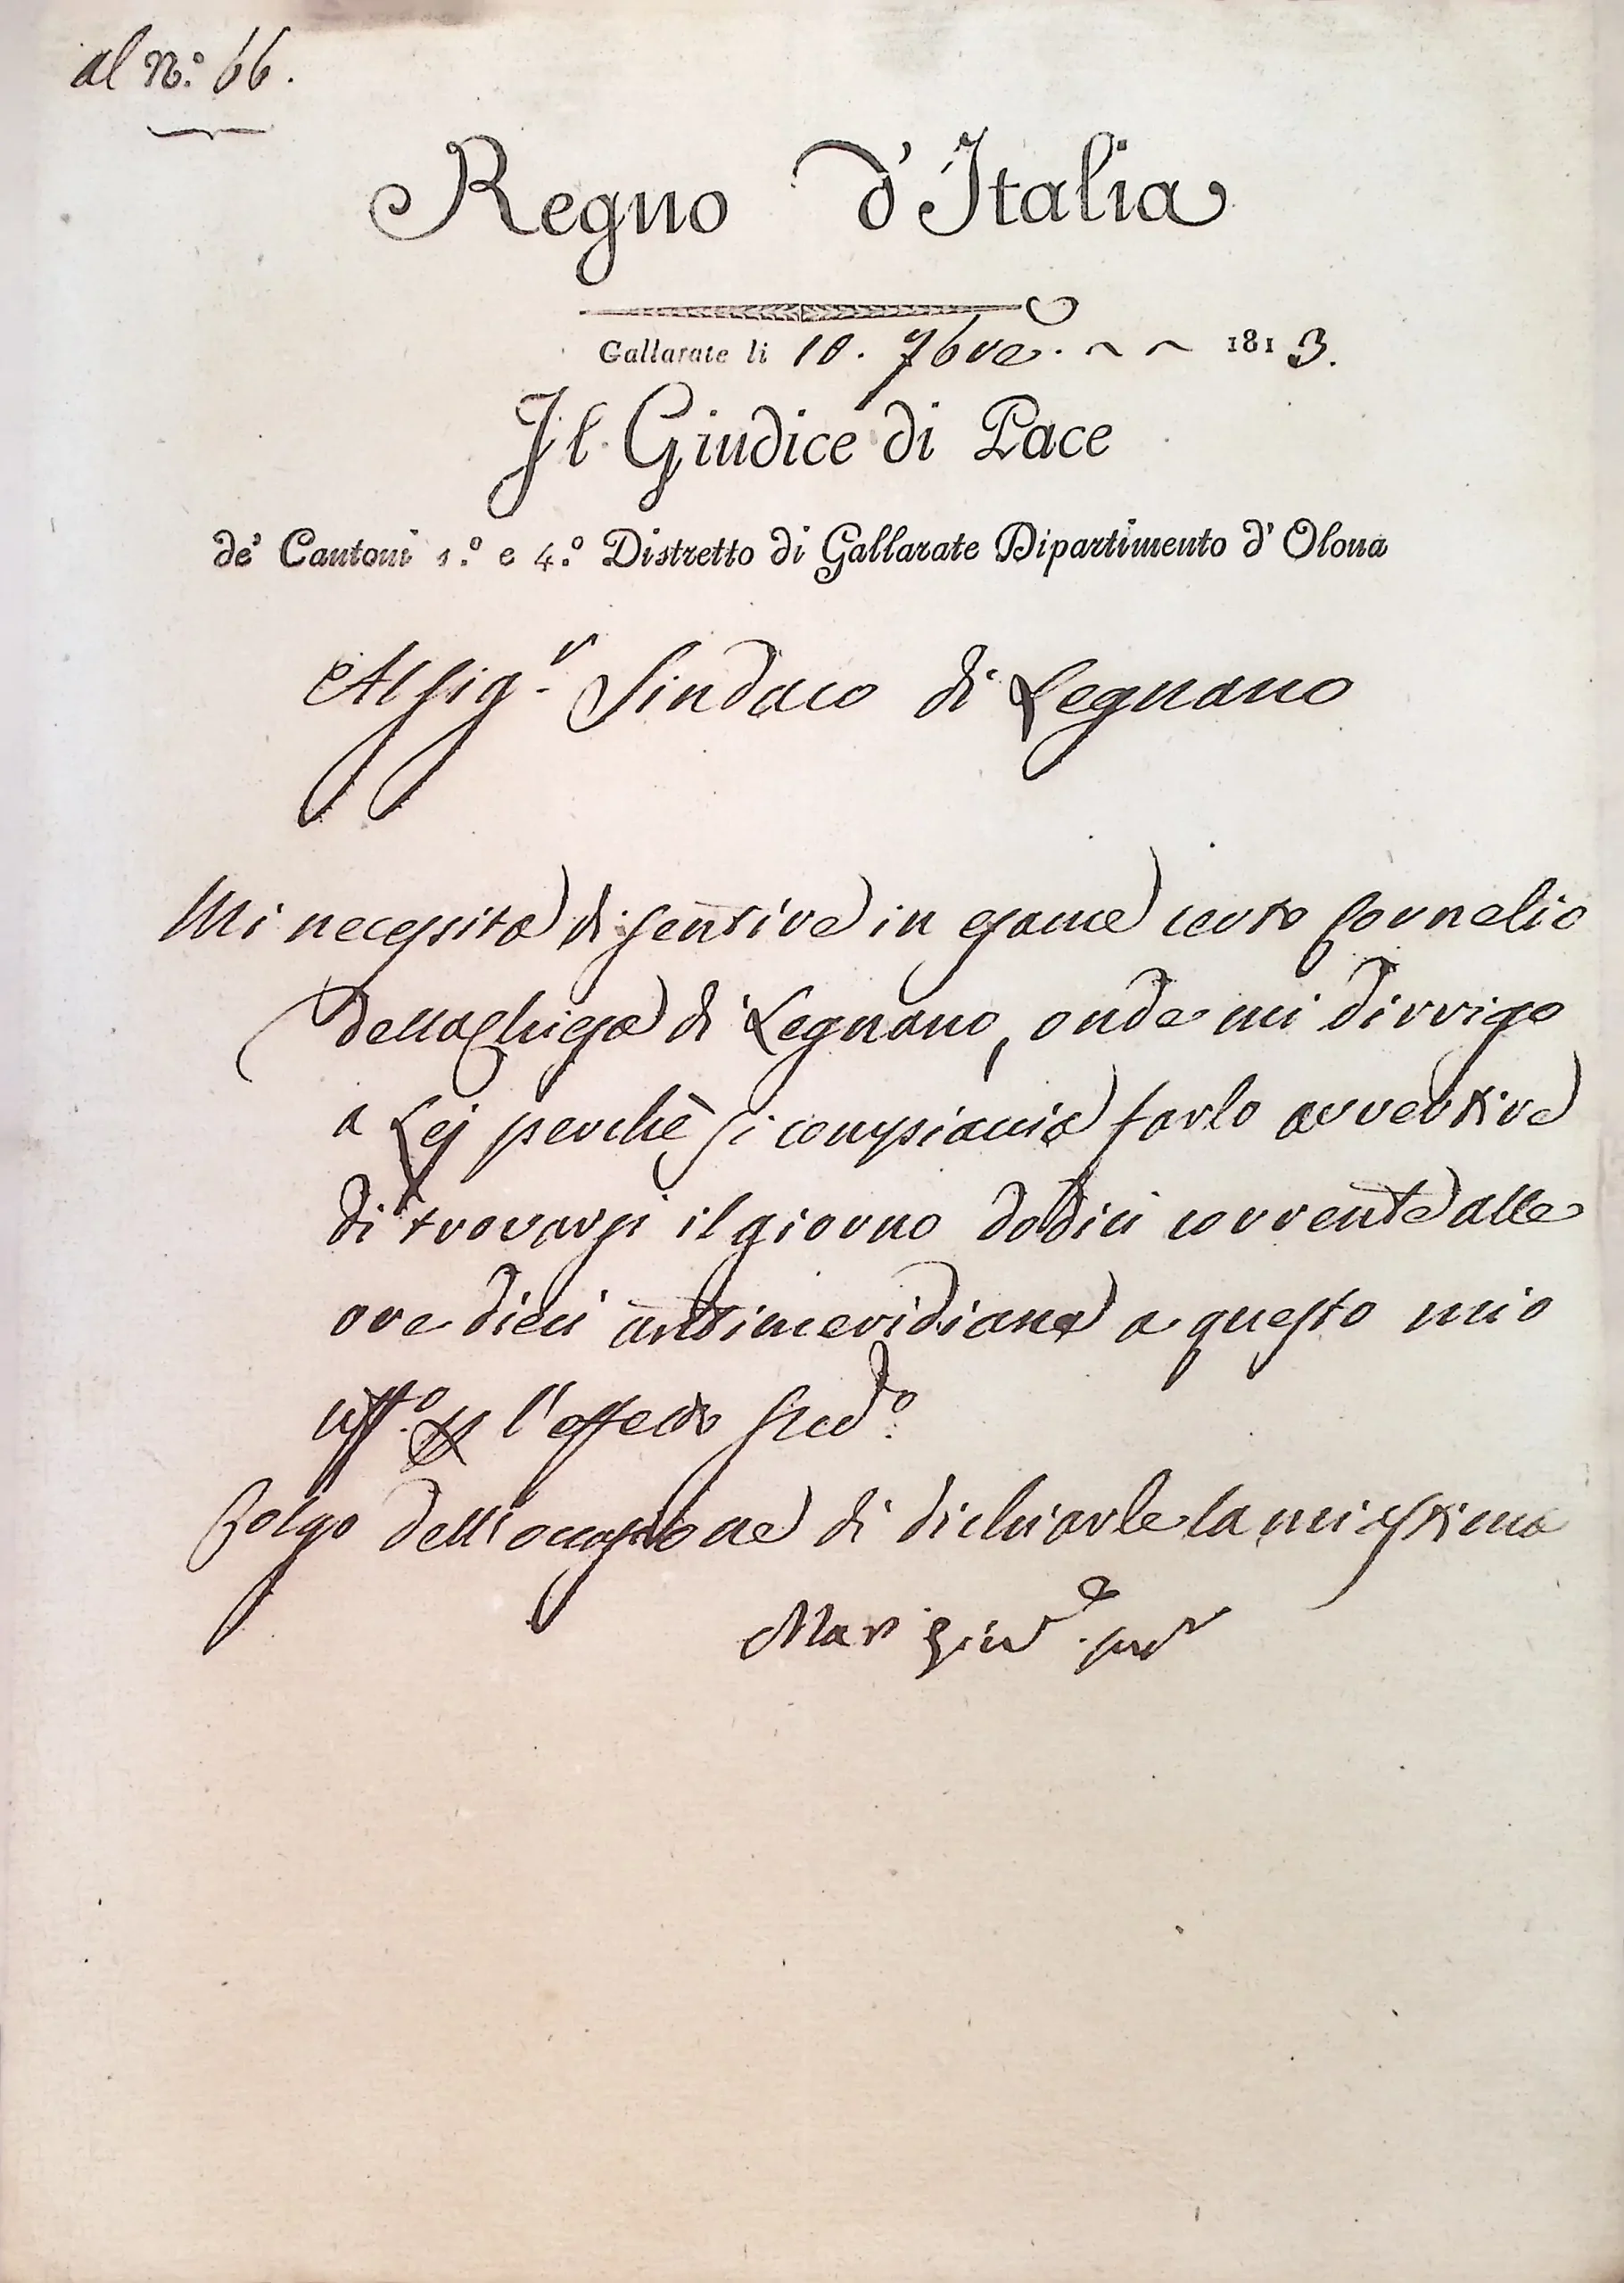 al N.º 66.
Regno d'Italia
Gallarate li 10. 7bre. 1813.
Il Giudice di Pace
de' Cantoni 1.º e 4.º Distretto di Gallarate Dipartimento d'Olona
Al Sig.r Sindaco di Legnano
Mi necessita di sentire in esame certo Cornelio
Dellachiesa di Legnano, onde mi dirrigo
a Lej perchè si compiaccia farlo avvertire
di trovarsi il giorno dodici corrente alle
ore dieci antimeridiane a questo mio
uff.o l'effetto sud.o
Colgo dell'occasione di dichiarle la mia stima